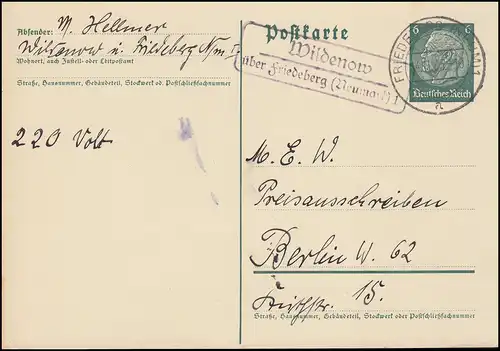 Absender: M. Hellmer
Wildenow ü. Friedeberg Nm. I
Wohnort, auch Zustell- oder Leitpostamt
Straße, Hausnummer, Gebäudeteil, Stockwerk od. Postschließfachnummer
220 Volt
Postkarte
Wildenow
über Friedeberg (Neumark) 1
FRIEDEBERG
a
6 6
Deutsches Reich
M. E. W.
Preisausschreiben
Berlin W. 62
15.
Straße, Hausnummer, Gebäudeteil, Stockwerk oder Postschließfachnummer